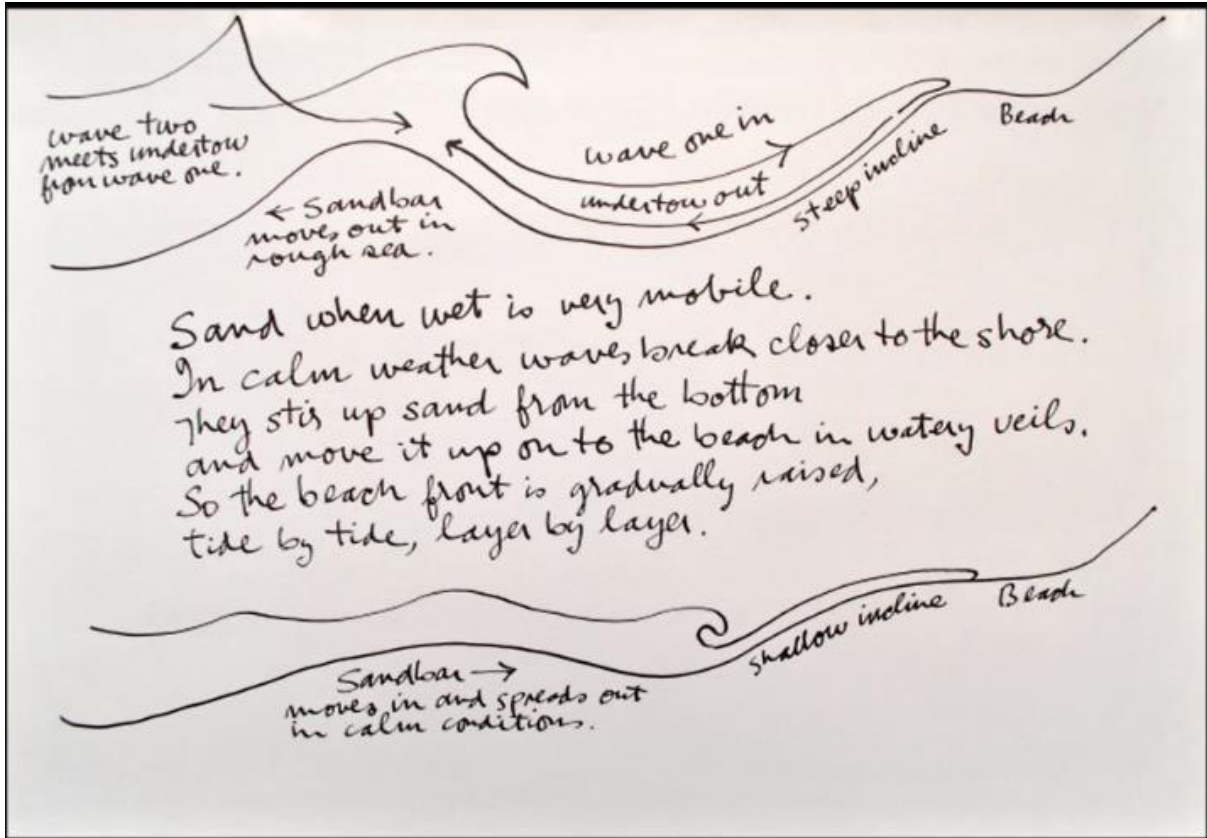 wave two
meets undertow
from wave one.
← Sandbar
moves out in
rough sea.
wave one in
undertow out
steep incline
Beach
Sand when wet is very mobile.
In calm weather waves break closer to the shore.
They stir up sand from the bottom
and move it up on to the beach in watery veils.
So the beach front is gradually raised,
tide by tide, layer by layer.
Sandbar →
moves in and spreads out
in calm conditions.
shallow incline
Beach